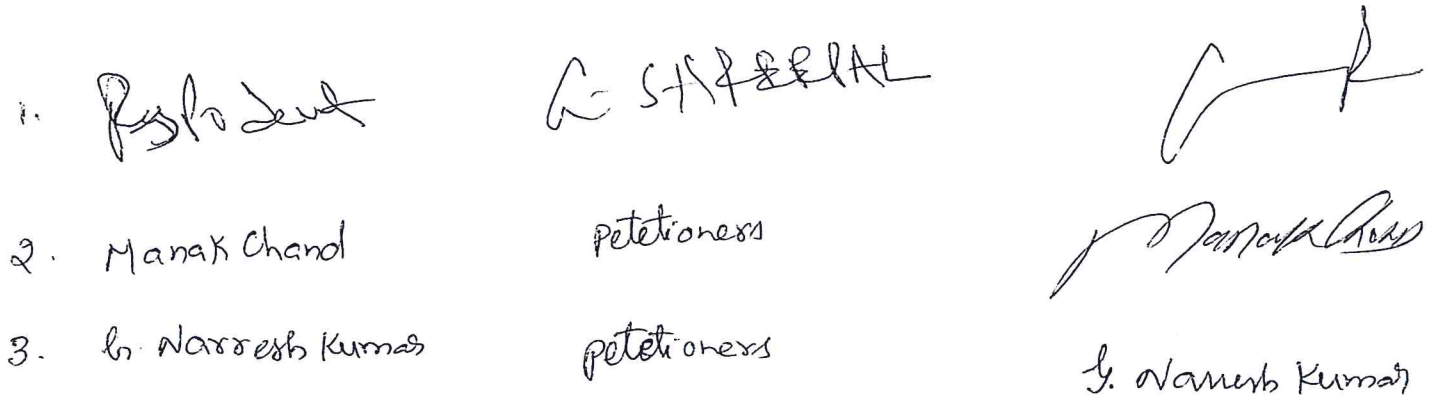 1. Respodent G. SHREEPAL
2. Manak Chand petetioners Manak Chand
3. G. Narresh Kumar petetioners G. Narresh Kumar